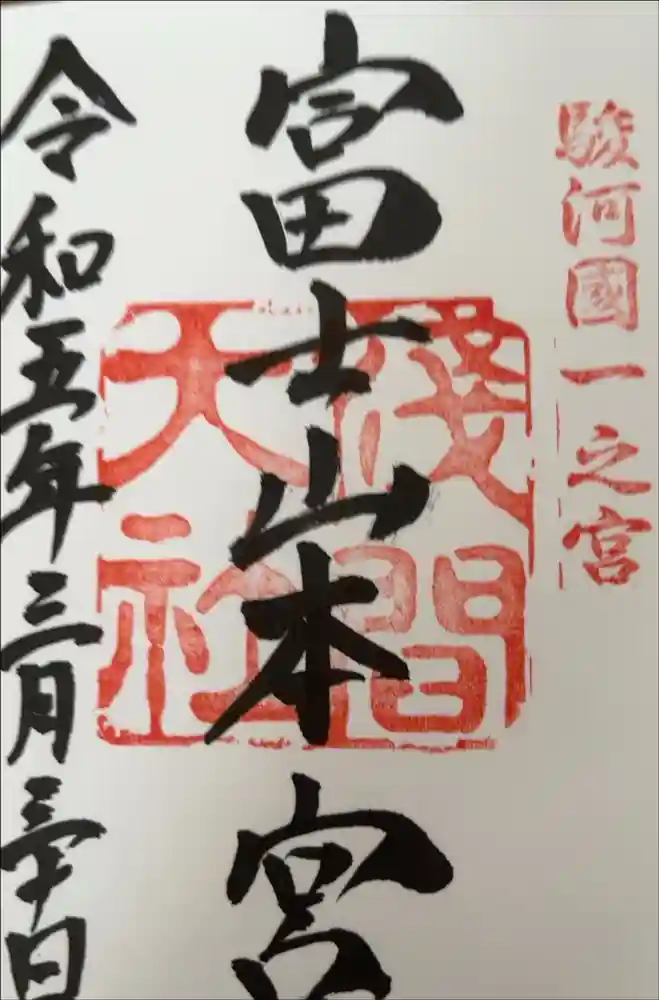 駿河國一之宮
富士山本宮
淺間
大社
令和五年三月三十日